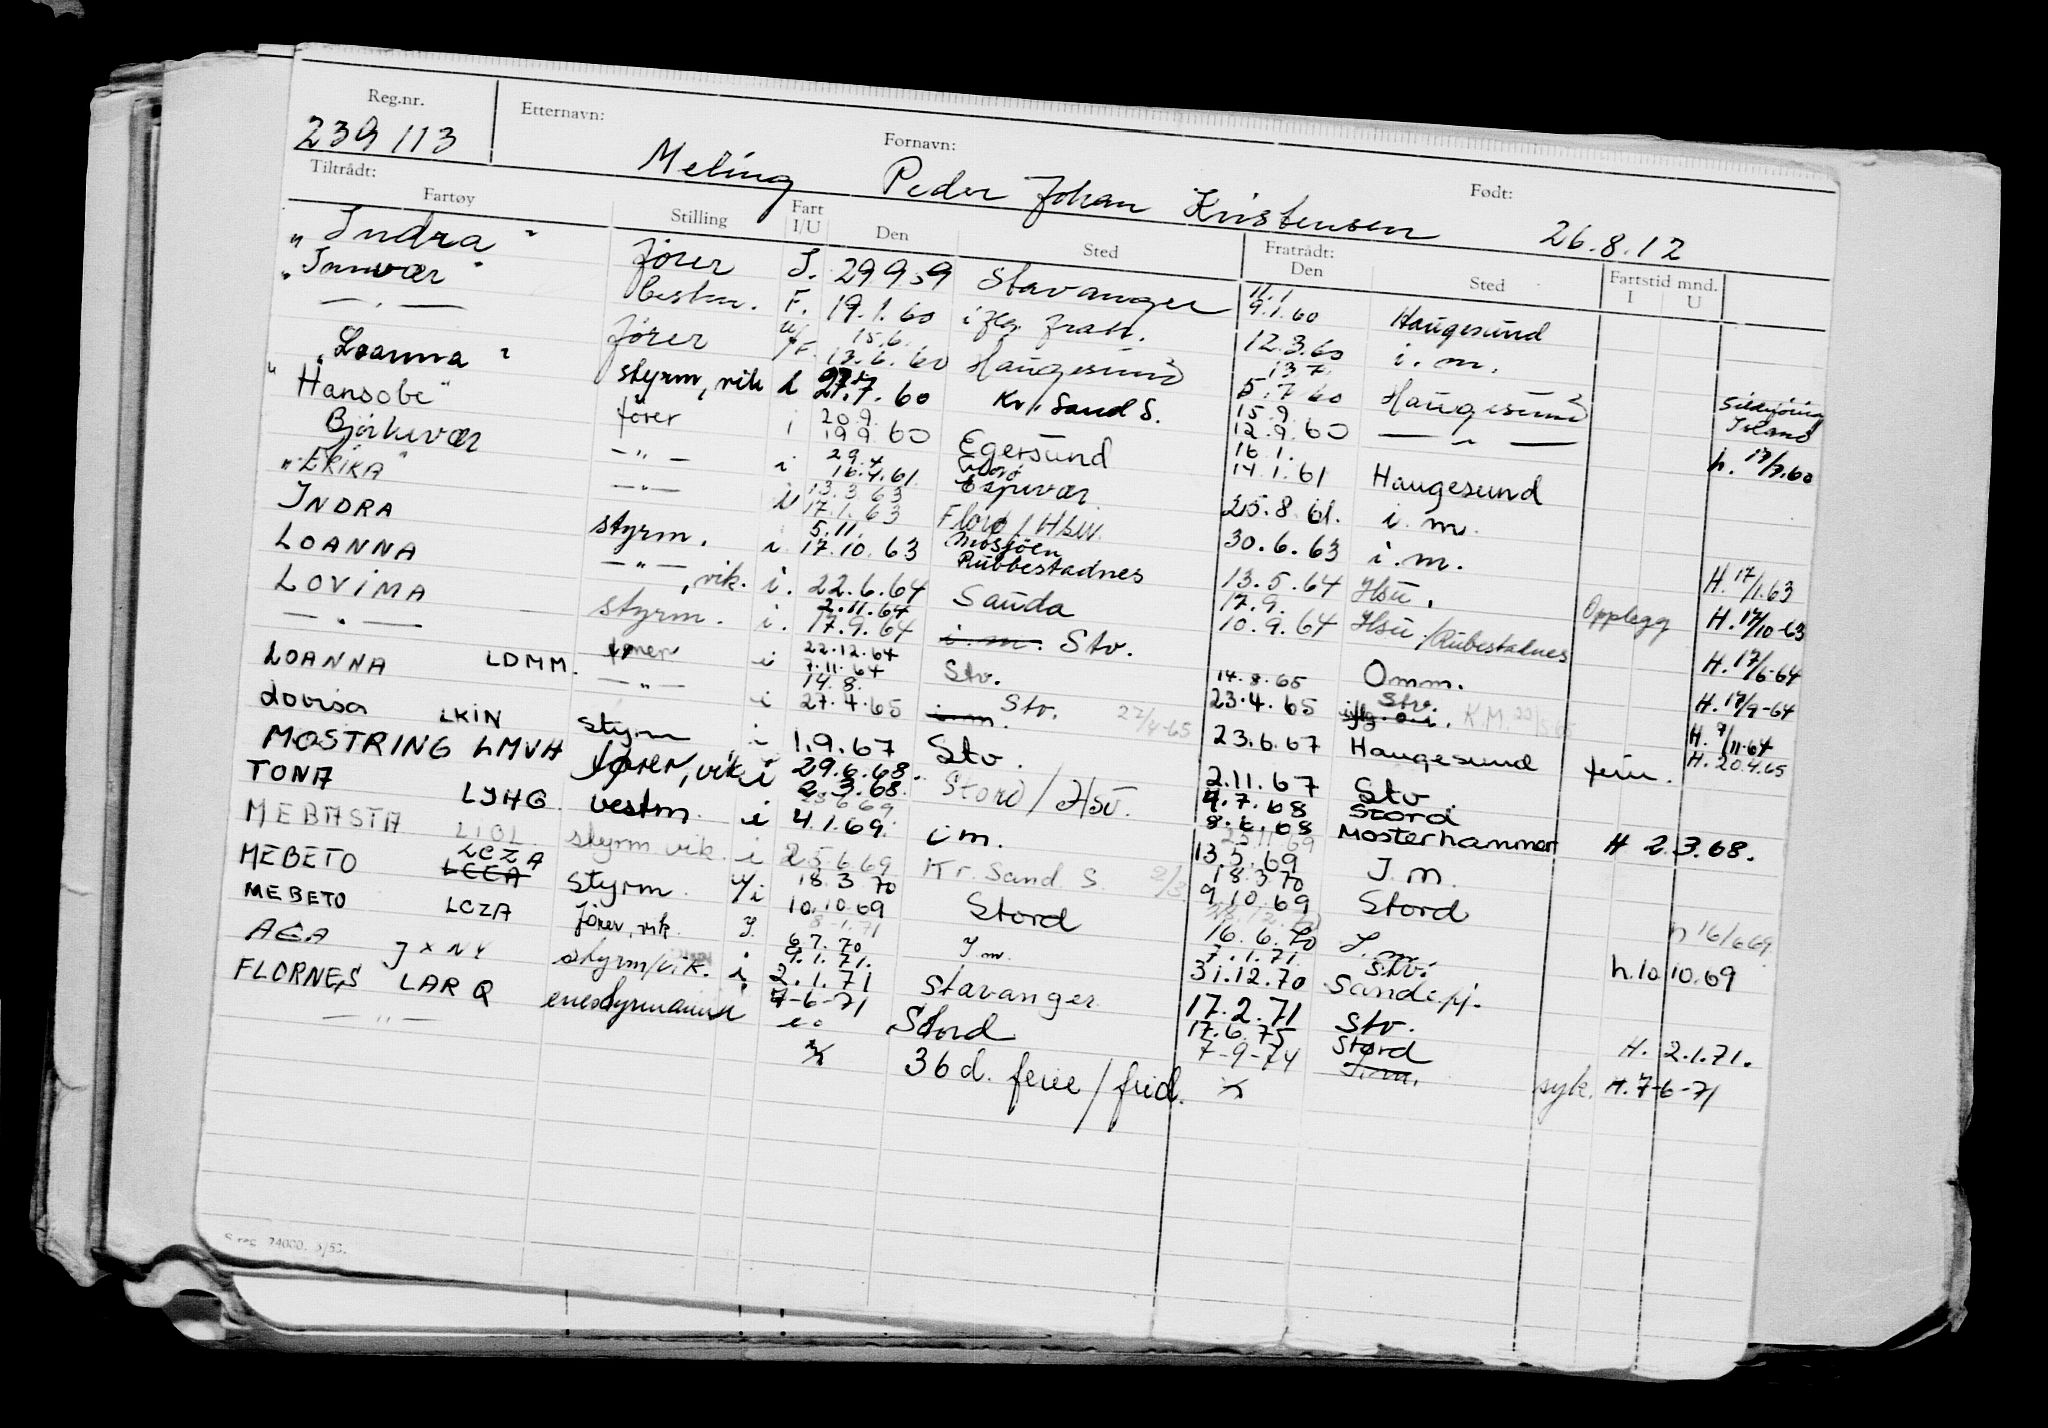 Reg.nr. Etternavn: Fornavn: Født:
239113 Meling Peder Johan Kristensen 26.8.12
Tiltrådt: Fratrådt:
Fartøy Stilling Fart I/U Den Sted Den Sted Fartstid mnd. I U
"Indra" fører I. 29 9 59 Stavanger 11.1 9.1.60 Haugesund
"Innvær" bestm. F. 19.1.60 ifлg. fratr. 12.3.60 i.m.
— " — fører 15.6. 13.6.60 Haugesund 13 7. 5.7 60 Haugesund Island
"Loanna" styrm, vik 27.7.60 Kr. Sand S. 15.9. 12.9.60 — " — h. 17/7.60
"Hansobe" fører i 20.9. 19 9 60 Egersund 16 1. 14.1.61 Haugesund
Bjørkevær — " — i 29.4 16.4.61 Espevær 25.8.61. i.m.
"ERIKA" — " — 13.3 63 17.1.63 Florø / Hsw. 30.6.63 i.m. H. 17/1.63
INDRA styrm. i. 5.11. 17.10.63 Mosjøen Rubbestadnes 13.5.64 Hsu. Opplegg H. 17/10-63
LOANNA — " —, vik. i. 22.6.64 Sauda 17.9. 10.9.64 Hsu./Rubestadnes H. 17/6-64
LOVIMA styrm. i. 2.11.64 17.9.64 i.m. Stv. 14.8.65 Omm. H. 17/9-64
— " — fører i 22.12.64 7.11.64 Stv. 23.4.65 Stv. K.M. H. 7/11-64
LOANNA LDMM. — " — i 14.8. 27.4.65 i.m. Stv. 27/4-65 23.6.67 Haugesund ferie. H. 20.4.65
Lovisa LKIN styrm i 1.9.67 Stv. 2.11.67 Stv.
MOSTRING LMVH fører, vik i 29.6.68. 2.3.68. Stord/Hsv. 9.7.68 8.6.68 Stord Mosterhammer H 2.3.68.
TONA LJHG vestm. i 23 6 69 4.1.69. i m. 13.5.69 I.m.
MEBASTA styrm vik. i 25.6 69 Kr. Sand S. 18.3 70 9 10.69 Stord n 16/6 69
MEBETO LCZA LCCA styrm. u/i 18.3 70 10.10.69 Stord 16.6.70 I.m. h.10 10.69
MEBETO LCZA fører, vik y. 8.1.71 6 7. 70 I m. 7.1.71 31.12.70 Stv. Sandefj.
AGA JXNY styrm/vik. i. 9.1.71. 2.1.71 Stavanger 17.2.71 Stv. H. 2.1.71.
FLORNES LARQ enestyrmann 7-6-71 Stord 17.6.75 7-9-74 Stord I.m. syk. H. 7-6-71
— " — 36 d. ferie/frid.
S.reg. 24000. 5/53.